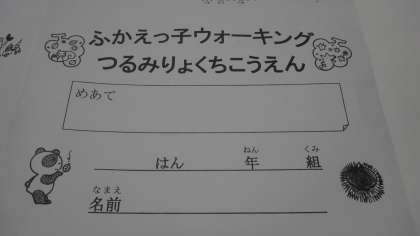 ふかえっ子ウォーキング
つるみりょくちこうえん
めあて
はん 年 組
ねん くみ
なまえ
名前